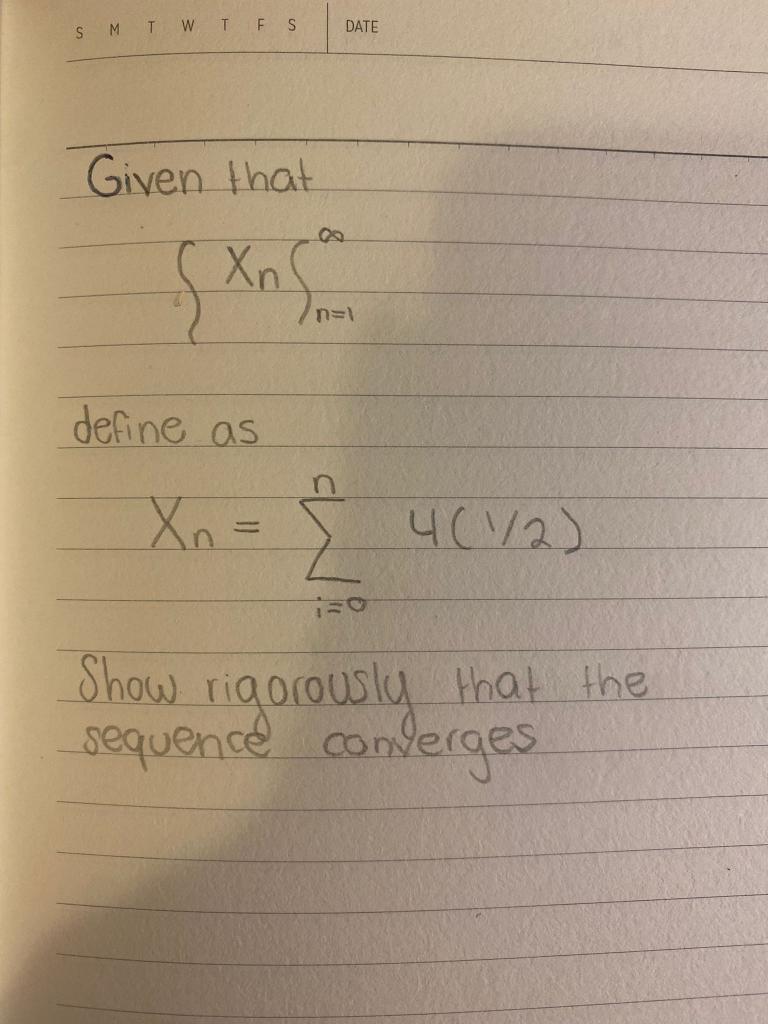 S M T W T F S DATE
Given that
{ Xn }∞n=1
define as
Xn = n∑i=0 4(1/2)
Show rigorously that the
sequence converges